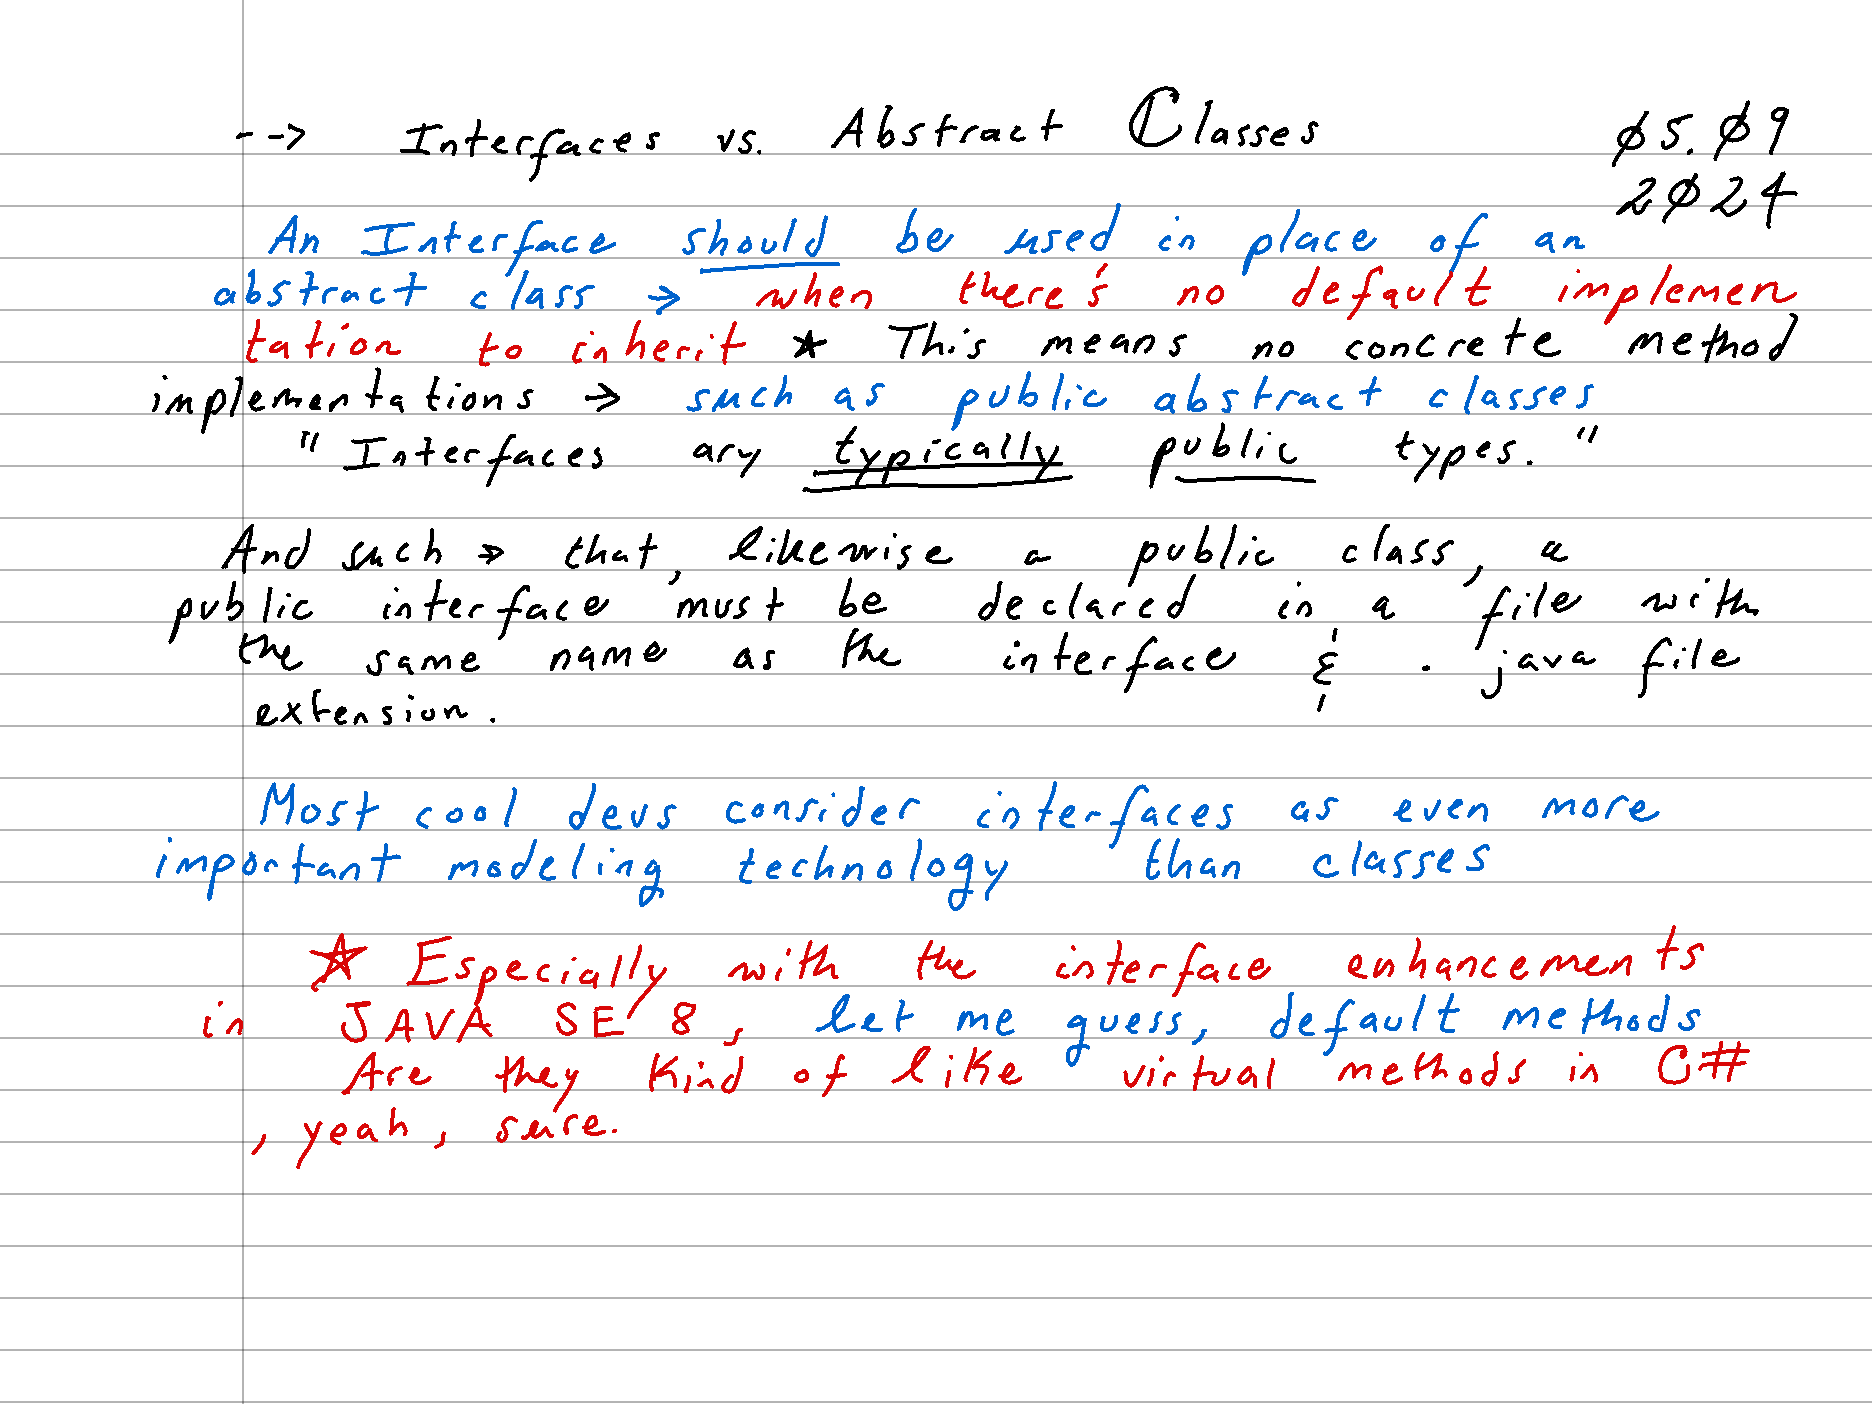 --> Interfaces vs. Abstract Classes
Ø5.Ø9
2Ø24
An Interface should be used in place of an
abstract class → when there's no default implemen
tation to inherit ★ This means no concrete method
implementations → such as public abstract classes
"Interfaces ary typically public types."
And such → that, likewise a public class, a
public interface must be declared in a file with
the same name as the interface & .java file
extension.
Most cool devs consider interfaces as even more
important modeling technology than classes
★ Especially with the interface enhancements
in JAVA SE 8, let me guess, default methods
Are they kind of like virtual methods in C#
, yeah, sure.